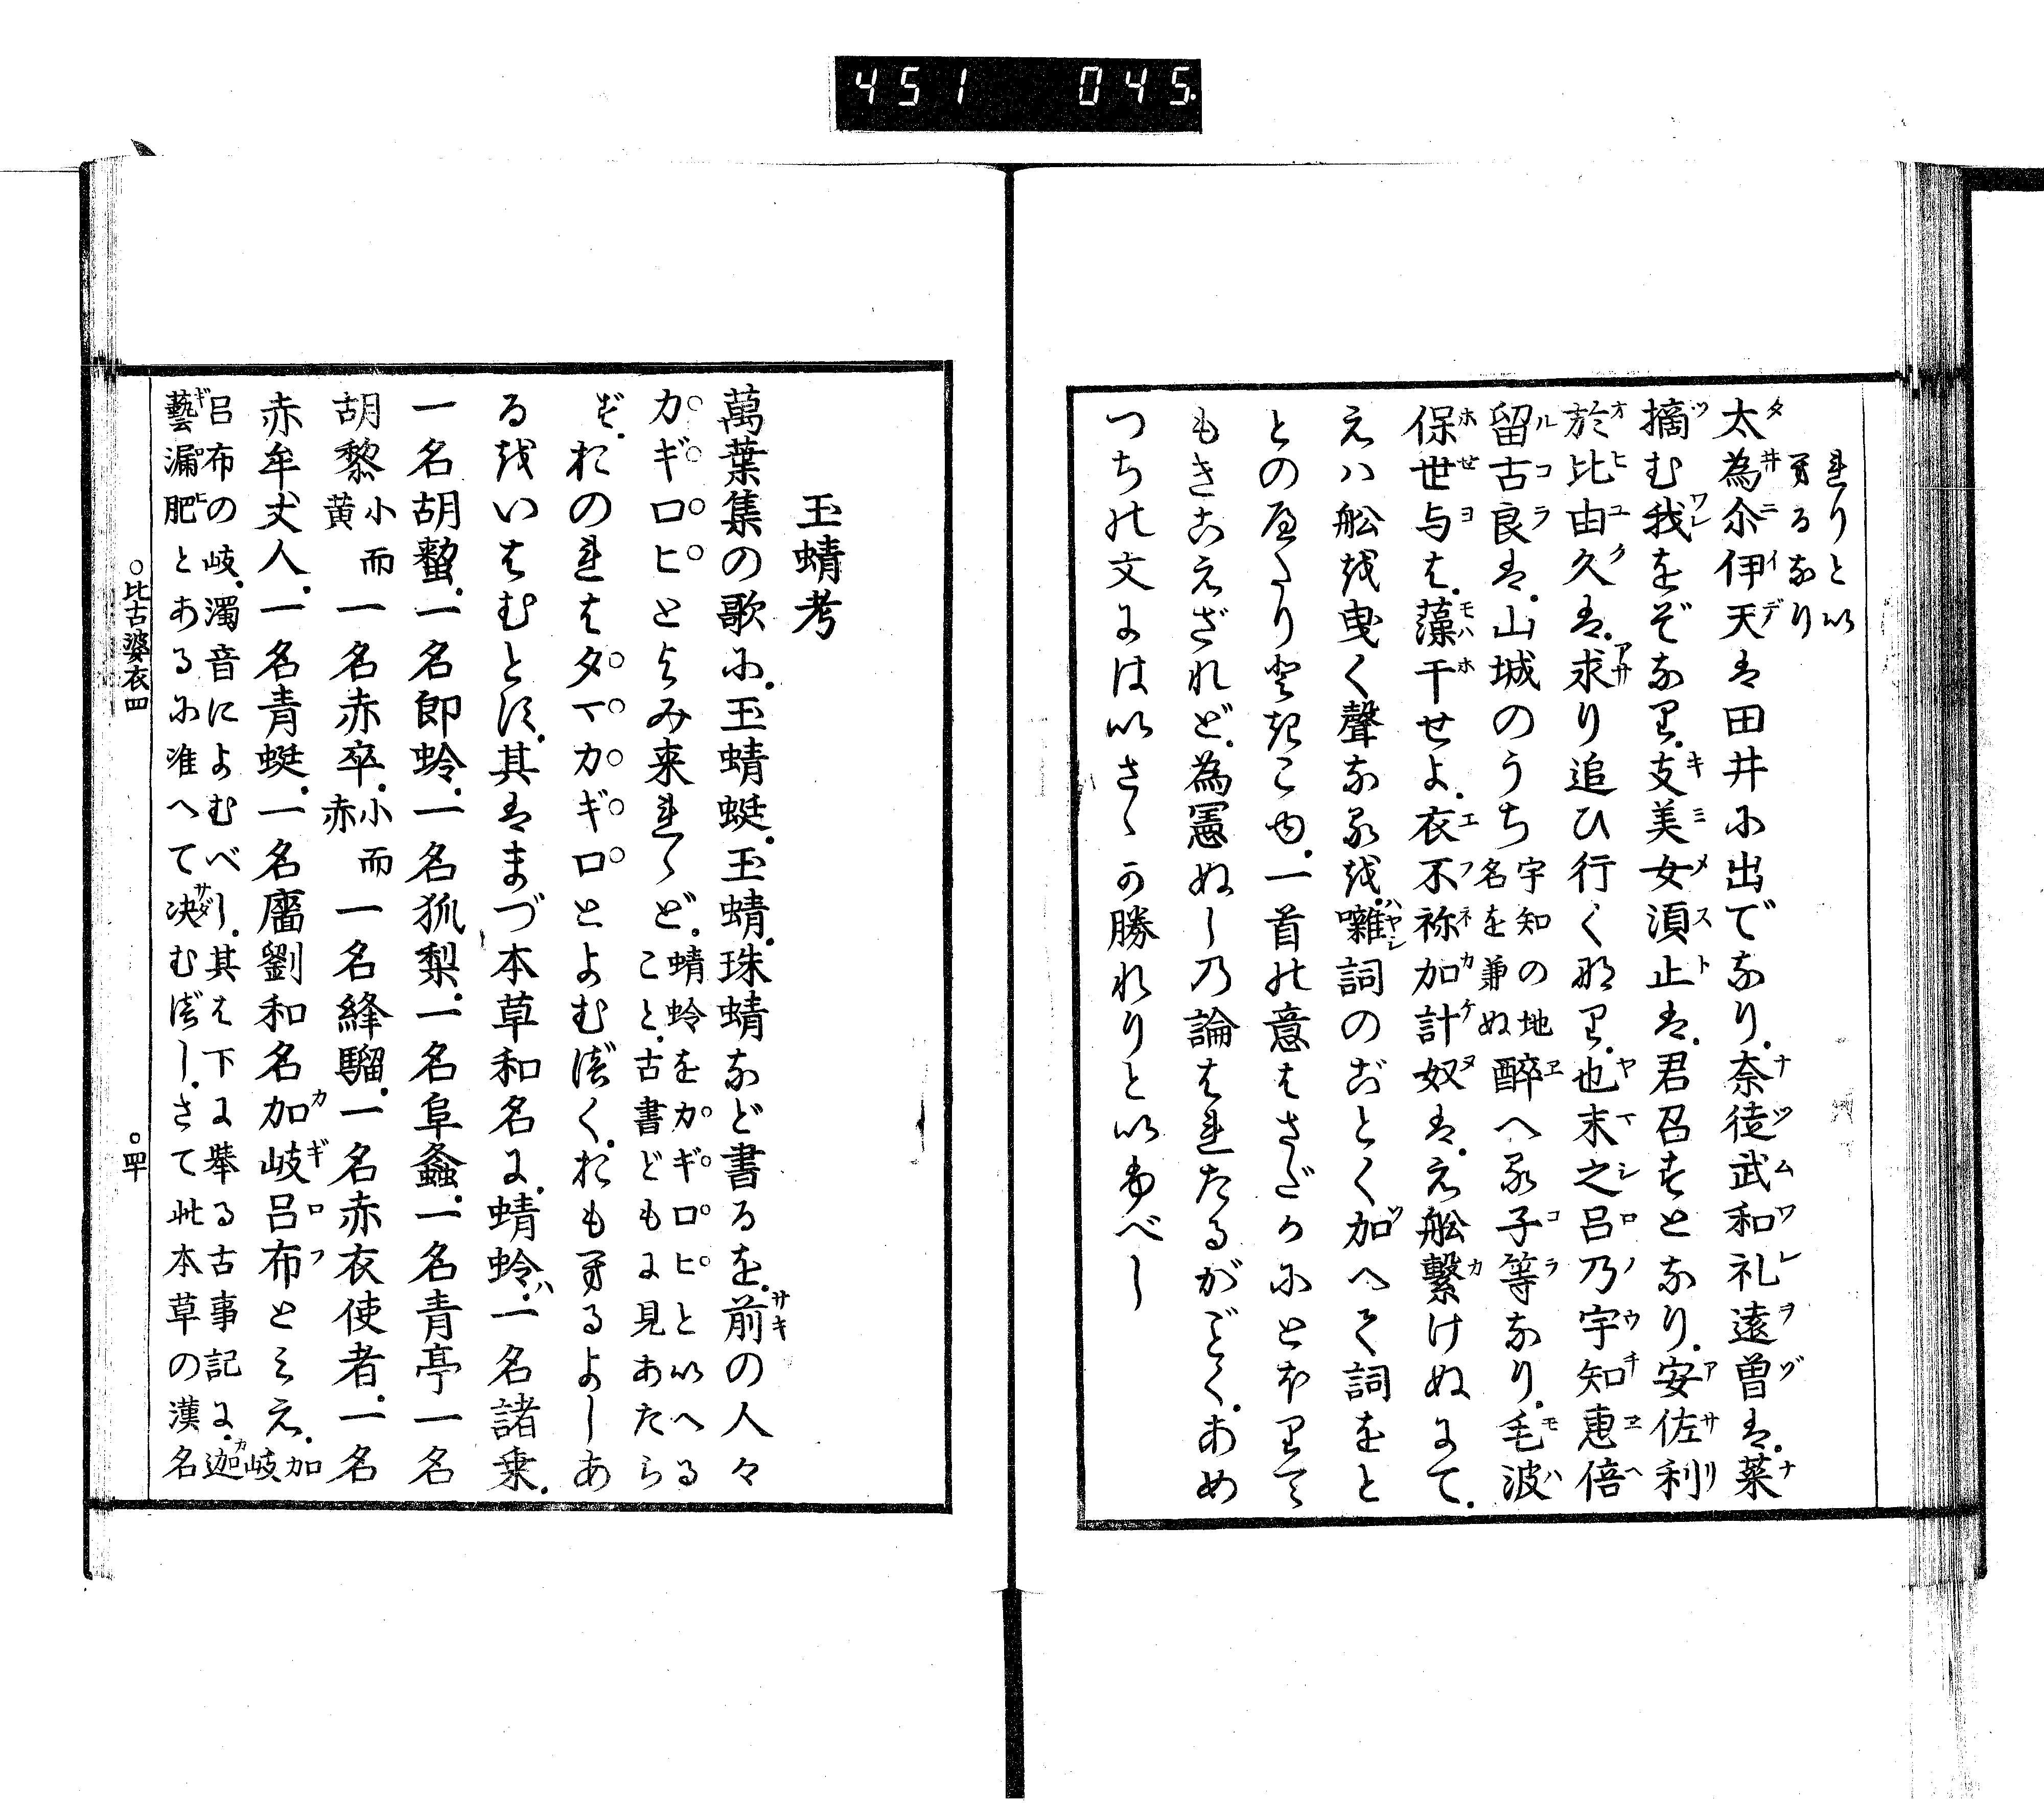 451 045
れりとい
有るなり
太為尓伊天は田井に出でなり。奈徒武和礼遠曽は。菜
摘む我をぞなり。支美女須止は。君召すとなり。安佐利
於比由久は。求り追ひ行くなり。也末之呂乃宇知恵倍
留古良は。山城のうち宇知の地名を兼ぬ醉へる子等なり。毛波
保世与は。藻干せよ。衣不祢加計奴は。え舩繋けぬにて。
えハ舩を曳く聲なるを。囃詞のごとく加へて詞をと
とのへたり
一首の意はさだかにとほりて
もきこえざれど。為憲ぬしの論はれたるがごとく。あめ
つちの文にはいさゝか勝れりといふべし
玉蜻考
萬葉集の歌に。玉蜻蜓。玉蜻。珠蜻など書るを。前の人々
カギロヒとよみ来れゝど。蜻蛉をカギロヒといへること。古書どもに見あたらず。
おのれはタマカギロとよむべく。おも有るよしあ
るをいはむとす。其はまづ本草和名に。蜻蛉。一名諸乗。
一名胡蟿。一名即蛉。一名狐梨。一名阜螽。一名青亭一名
胡黎小而黄一名赤卒。小而赤一名絳騮。一名赤衣使者。一名
赤牟丈人。一名青蜓。一名𧕅劉和名加岐呂布とみえ。加岐
呂布の岐。濁音によむべし。其は下に擧る古事記に。迦
藝漏肥とあるに准へて决むべし。さて此本草の漢名
○比古婆衣四
○四十